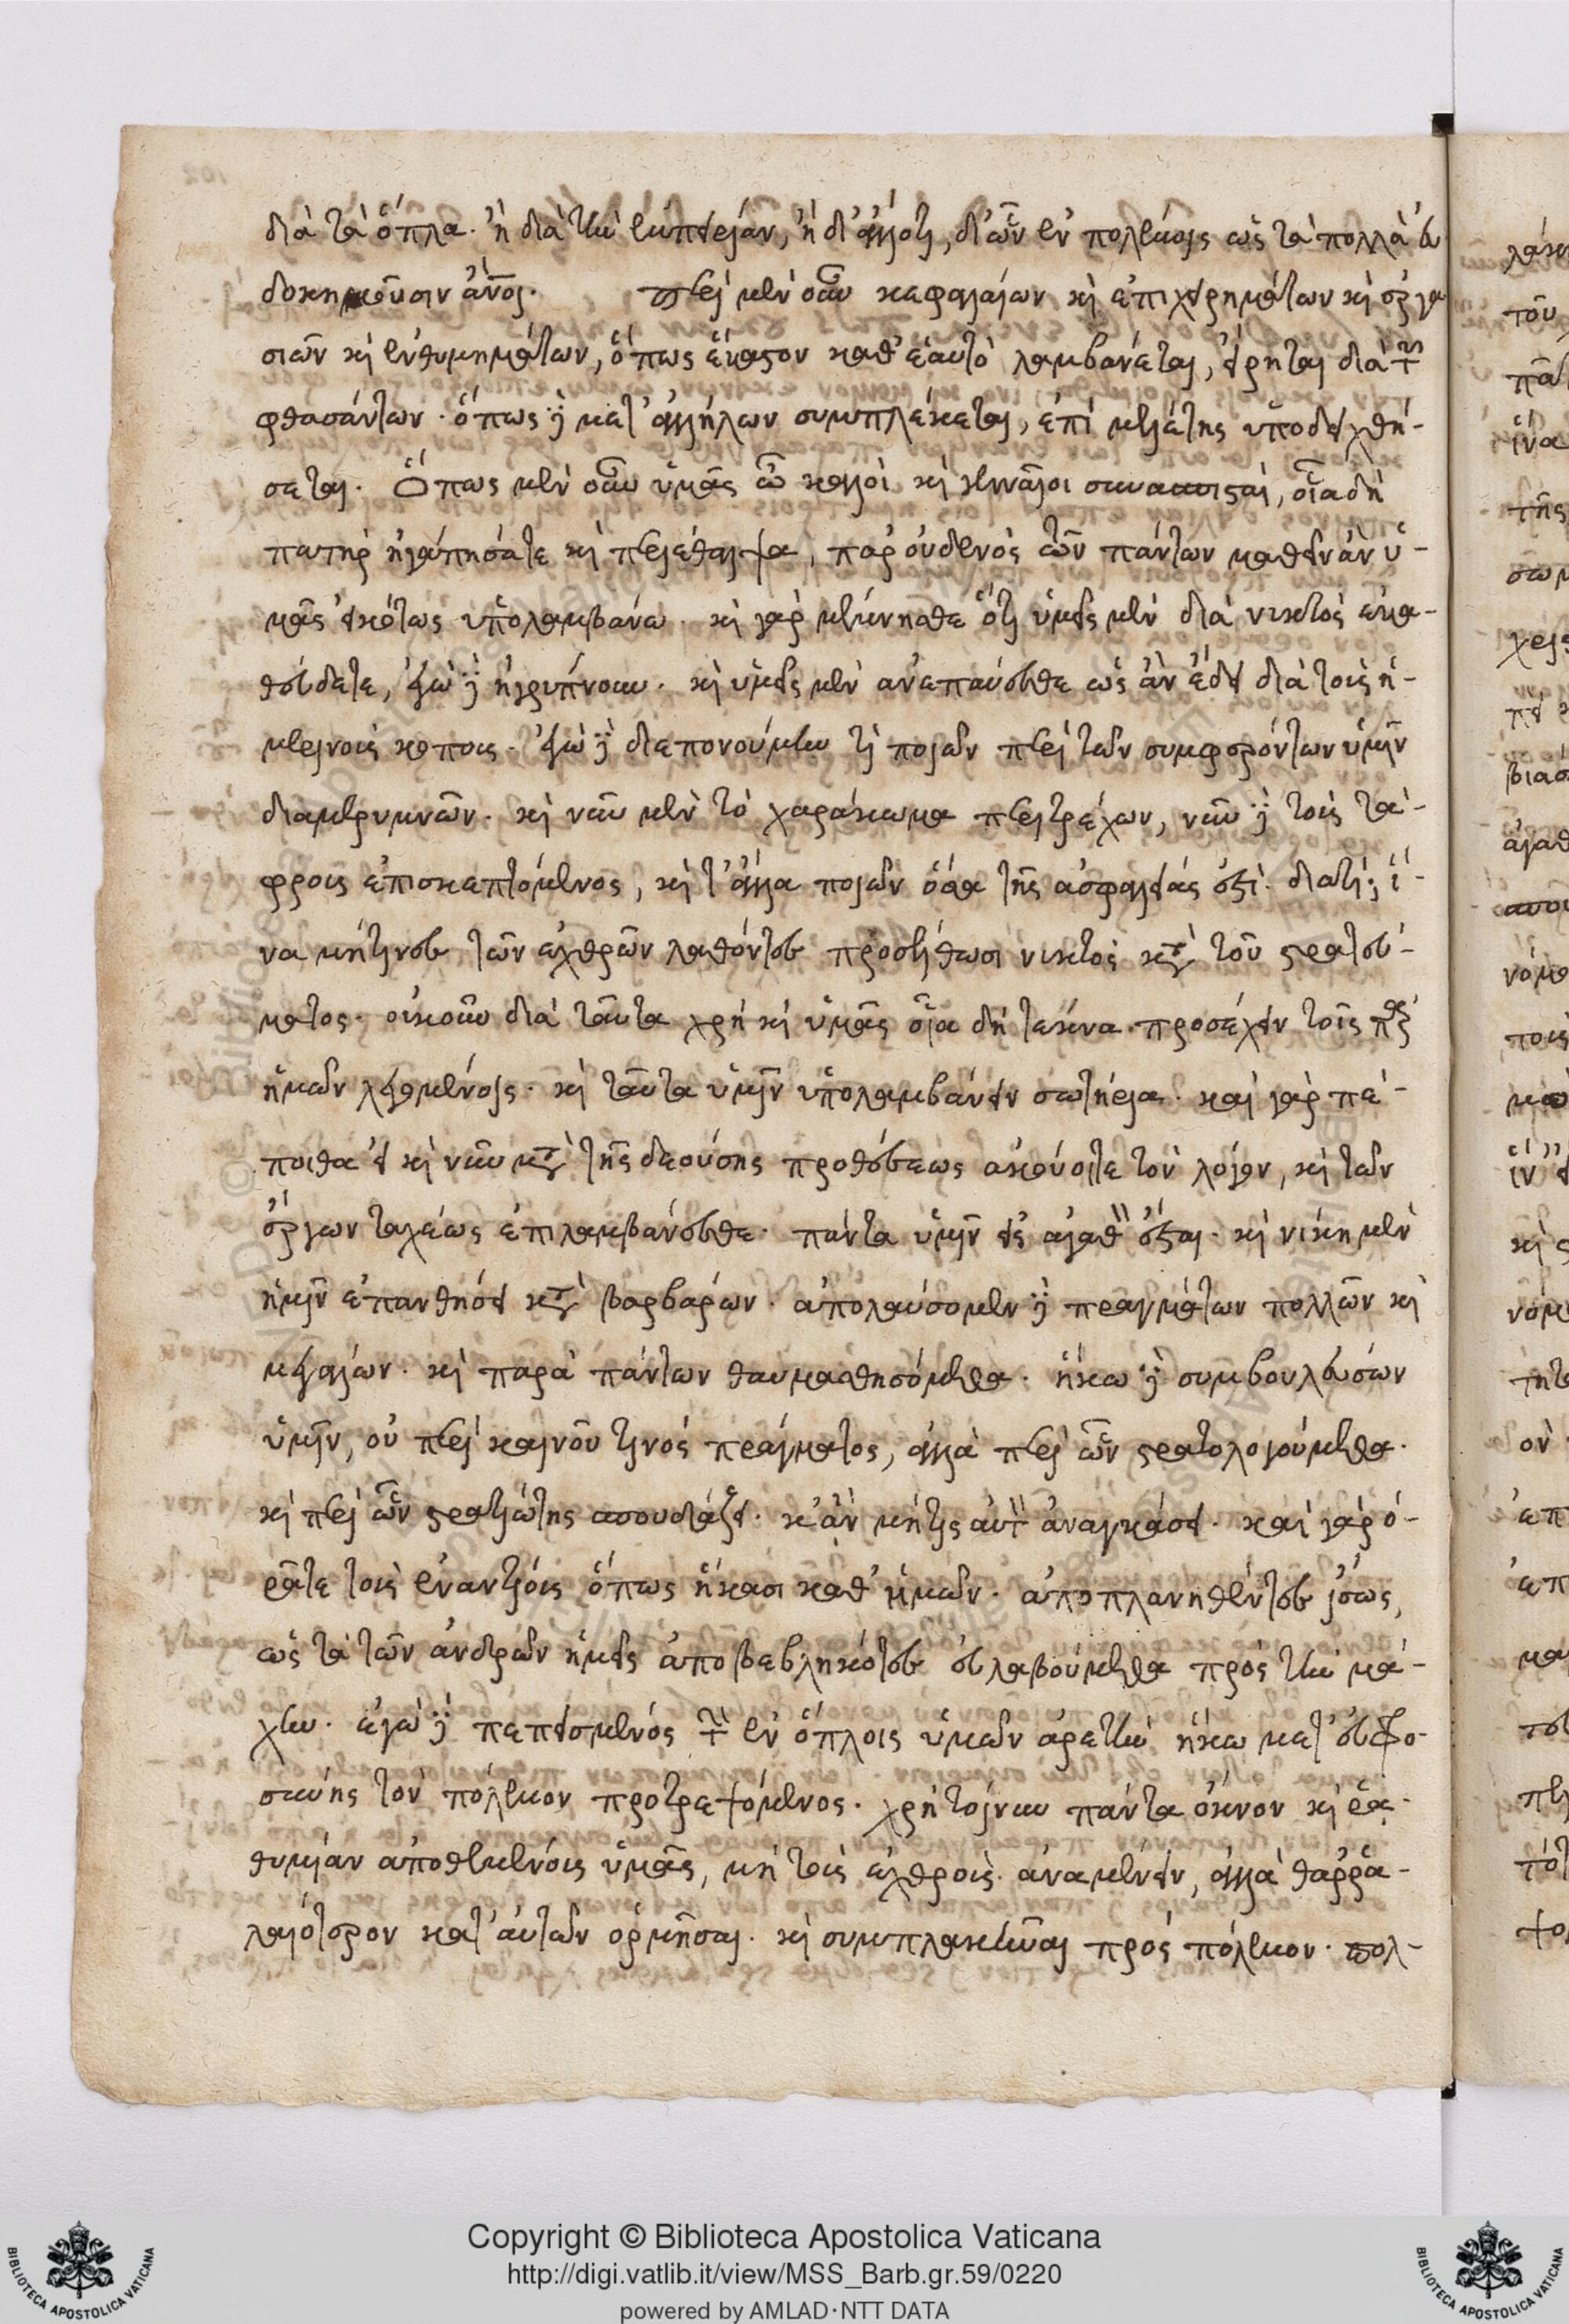 διὰ τὰ ὅπλα. ἢ διὰ τὴν ἐμπειρίαν, ἢ δι' ἄλλό τι, δι' ὧν ἐν πολέμοις ὡς τὰ πολλὰ εὐ
δοκιμοῦσιν ἄνοι. περὶ μὲν οὖν κεφαλαίων κὶ ἐπιχειρημάτων κὶ ἐργα
σιῶν κὶ ἐνθυμημάτων, ὅπως ἕκαστον καθ' ἑαυτὸ λαμβάνεται, εἴρηται διὰ τῶν
φθασάντων. ὅπως δὲ μετ' ἀλλήλων συμπλέκεται, ἐπὶ μελέτης ὑποδειχθή-
σεται. Ὅπως μὲν οὖν ὑμᾶς ὦ καλοὶ κὶ γενναῖοι συνασπισταὶ, οἷα δὴ
πατὴρ ἠγάπησά τε κὶ περιέθαλψα, παρ' οὐδενὸς τῶν πάντων μαθεῖν ἂν ὑ-
μᾶς εἰκότως ὑπολαμβάνω. κὶ γὰρ μέμνησθε ὅτι ὑμεῖς μὲν διὰ νυκτὸς ἐκα-
θεύδετε, ἐγὼ δὲ ἠγρύπνουν. κὶ ὑμεῖς μὲν ἀνεπαύεσθε ὡς ἂν ἔδει διὰ τοὺς ἡ-
μερινοὺς κόπους. ἐγὼ δὲ διεπονούμην τὶ ποιῶν περὶ τῶν συμφερόντων ὑμῖν
διαμεριμνῶν. κὶ νῦν μὲν τὸ χαράκωμα περιτρέχων, νῦν δὲ τοὺς τά-
φρους ἐπισκεπτόμενος, κὶ τ' ἄλλα ποιῶν ὅσα τῆς ἀσφαλείας ἐστί. διατί; ἵ-
να μήτινες τῶν ἐχθρῶν λαθόντες προστεθῶσι νυκτὸς κατὰ τοῦ στρατεύ-
ματος. οὐκοῦν διὰ ταῦτα χρὴ κὶ ὑμᾶς οἷα δὴ τέκνα προσέχειν τοῖς παρ'
ἡμῶν λεγομένοις. κὶ ταῦτα ὑμῖν ὑπολαμβάνειν σωτήρια. καὶ γὰρ πέ-
ποιθα εἰ κὶ νῦν μετὰ τῆς δεούσης προθέσεως ἀκούοιτε τὸν λόγον, κὶ τῶν
ἔργων ταχέως ἐπιλαμβάνεσθε. πάντα ὑμῖν εἰς ἀγαθὸν ἔσται. κὶ νίκη μὲν
ἡμῖν ἐπανθήσει κατὰ βαρβάρων. ἀπολαύσομεν δὲ πραγμάτων πολλῶν κὶ
μεγάλων. κὶ παρὰ πάντων θαυμασθησόμεθα. ἥκω δὲ συμβουλεύσων
ὑμῖν, οὐ περὶ καινοῦ τινὸς πράγματος, ἀλλὰ περὶ ὧν στρατολογούμεθα.
κὶ περὶ ὧν στρατιώτης σπουδάζει. κ' ἂν μήτις αὐτὸν ἀναγκάσει. καὶ γὰρ ὁ-
ρᾶτε τοὺς ἐναντίους ὅπως ἥκασι καθ' ἡμῶν. ἀποπλανηθέντες ἴσως,
ὡς τὰ τῶν ἀνδρῶν ἡμεῖς ἀποβεβληκότες εὐλαβούμεθα πρὸς τὴν μά-
χην. ἐγὼ δὲ πεπεισμένος τὴν ἐν ὅπλοις ὑμῶν ἀρετὴν ἥκω μετ' εὐφρο-
σύνης τὸν πόλεμον προτρεψόμενος. χρὴ τοίνυν πάντα ὄκνον κὶ ῥα-
θυμίαν ἀποθεμένους ὑμᾶς, μὴ τοὺς ἐχθροὺς ἀναμένειν, ἀλλὰ θαῤῥα-
λαιότερον κατ' αὐτῶν ὁρμῆσαι. κὶ συμπλακῆναι πρὸς πόλεμον. πολ-
Copyright © Biblioteca Apostolica Vaticana
http://digi.vatlib.it/view/MSS_Barb.gr.59/0220
powered by AMLAD·NTT DATA